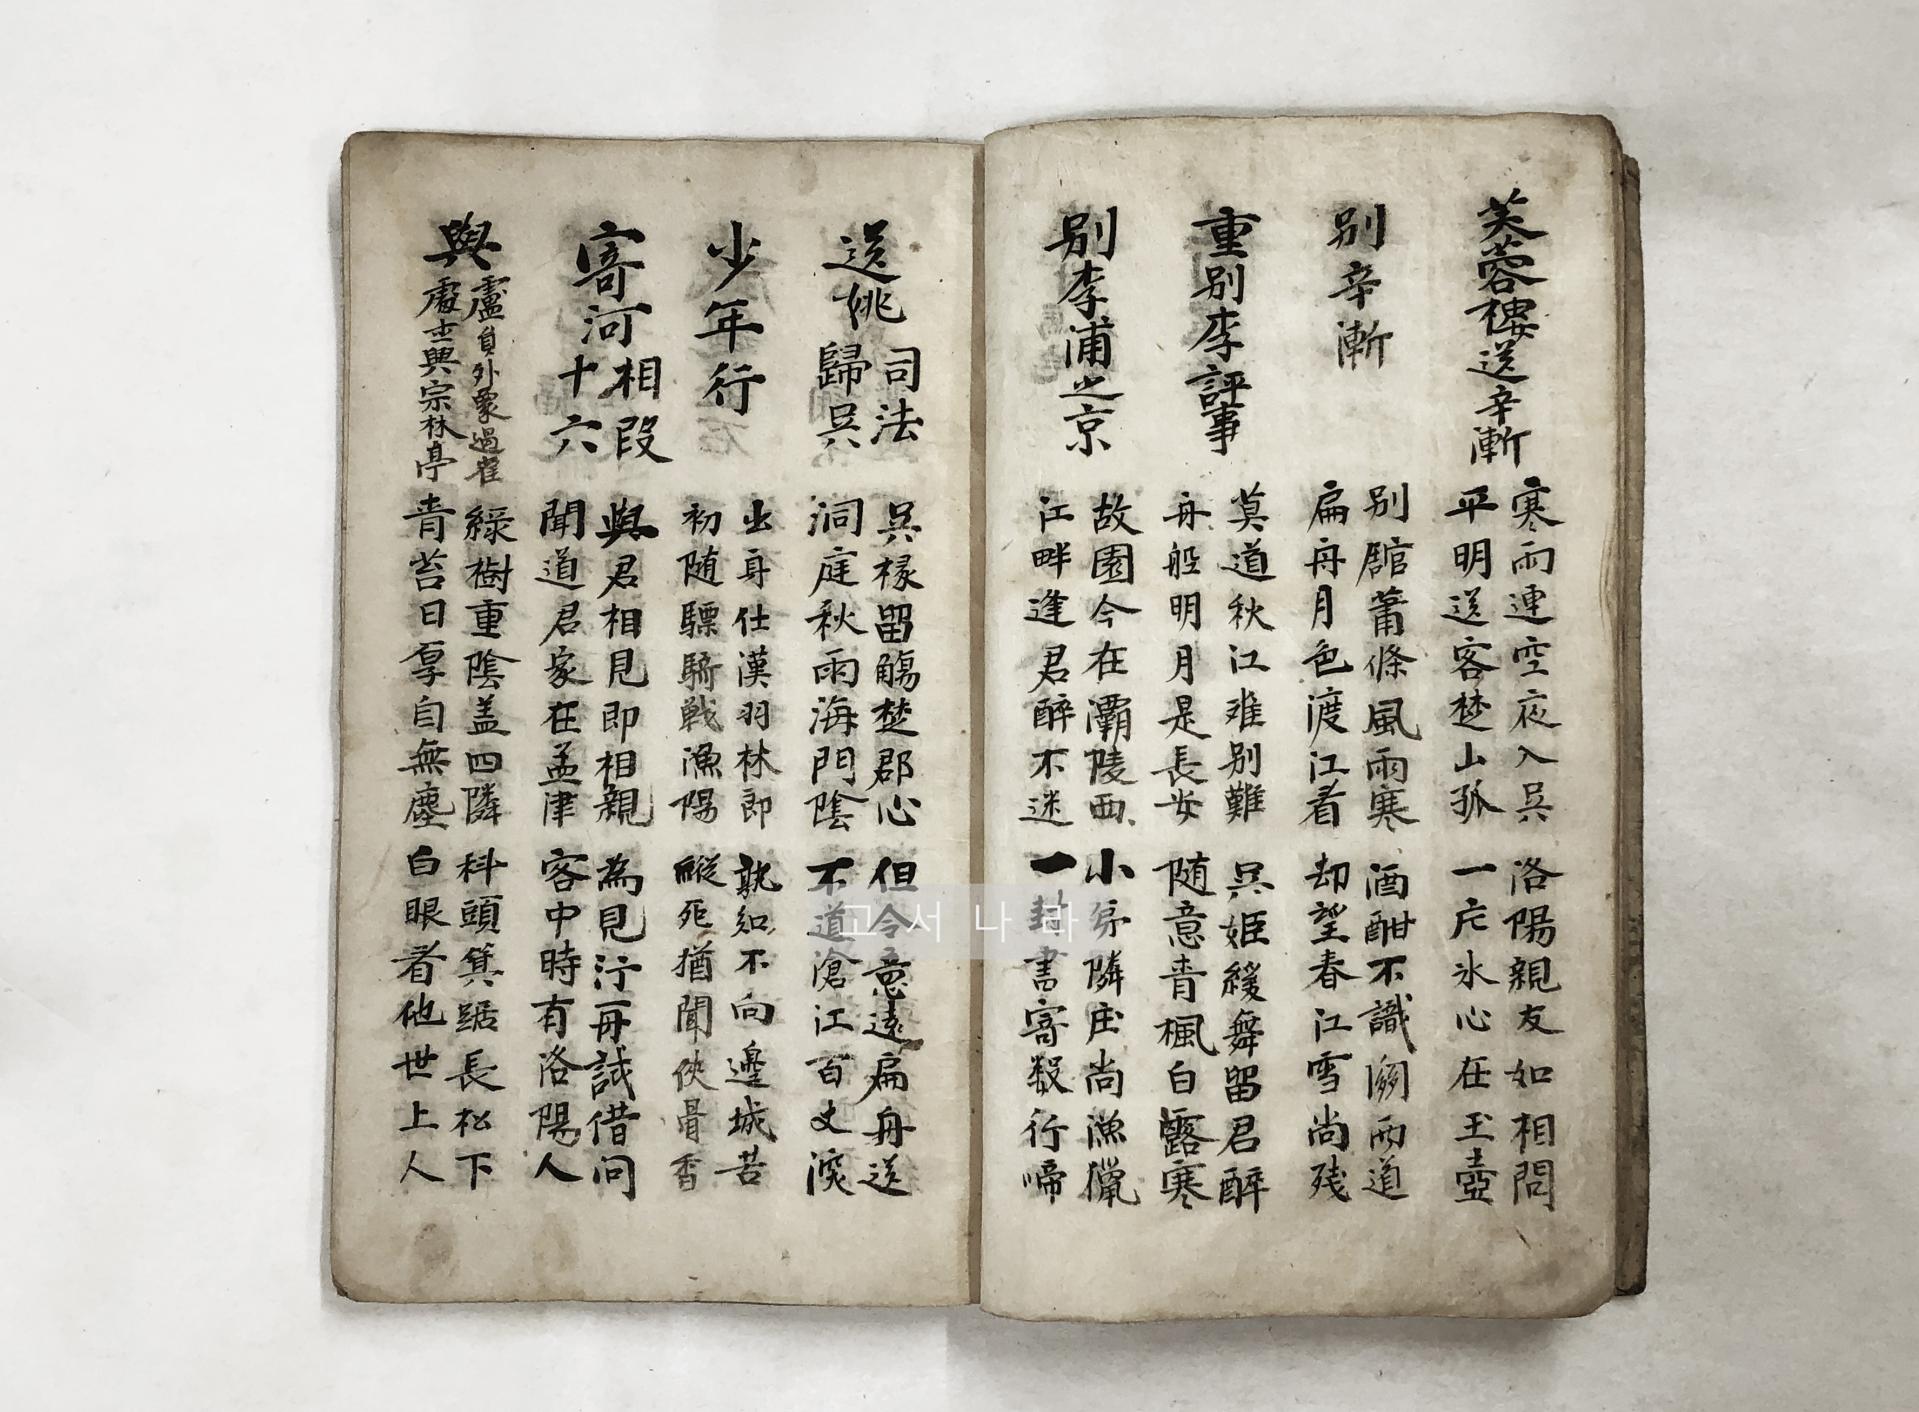 芙蓉樓送辛漸
寒雨連空夜入吳 洛陽親友如相問
平明送客楚山孤 一片氷心在玉壺
別辛漸
別館蕭條風雨寒 酒酣不識關西道
扁舟月色渡江看 却望春江雪尚残
重別李評事
莫道秋江难別難 吳姬緩舞留君醉
舟船明月是長安 随意青楓白露寒
別李浦之京
故園今在灞陵西 小弟隣庄尚漁獵
江畔逢君醉不迷 一封書寄數行啼
送姚司法歸吳
吳掾留觴楚郡心 但令意遠扁舟送
洞庭秋雨海門陰 不道滄江百丈深
少年行
出身仕漢羽林郎 孰知不向邊城苦
初随驃騎戰漁陽 縱死猶聞俠骨香
寄河相段十六
與君相見即相親 為見汀再試借問
聞道君家在孟津 客中時有洛陽人
與盧員外象過崔處士興宗林亭
綠樹重陰盖四隣 科頭箕踞長松下
青苔日厚自無塵 白眼看他世上人
고서나라